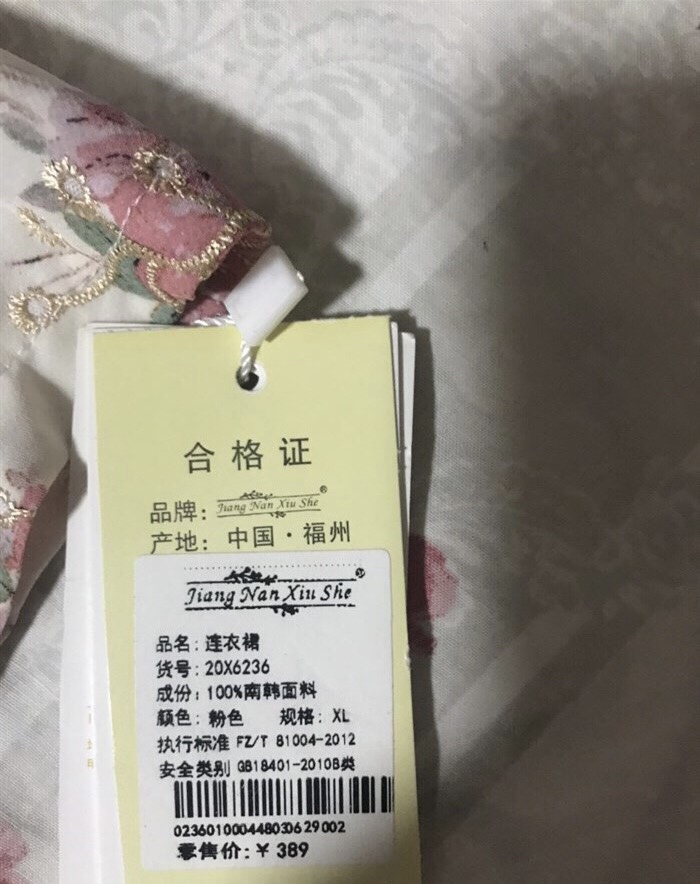 合格证
品牌: Jiang Nan Xiu She®
产地: 中国·福州
Jiang Nan Xiu She®
品名: 连衣裙
货号: 20X6236
成份: 100%南韩面料
颜色: 粉色 规格: XL
执行标准 FZ/T 81004-2012
安全类别 GB18401-2010B类
02360100044803062 9002
零售价: ¥ 389